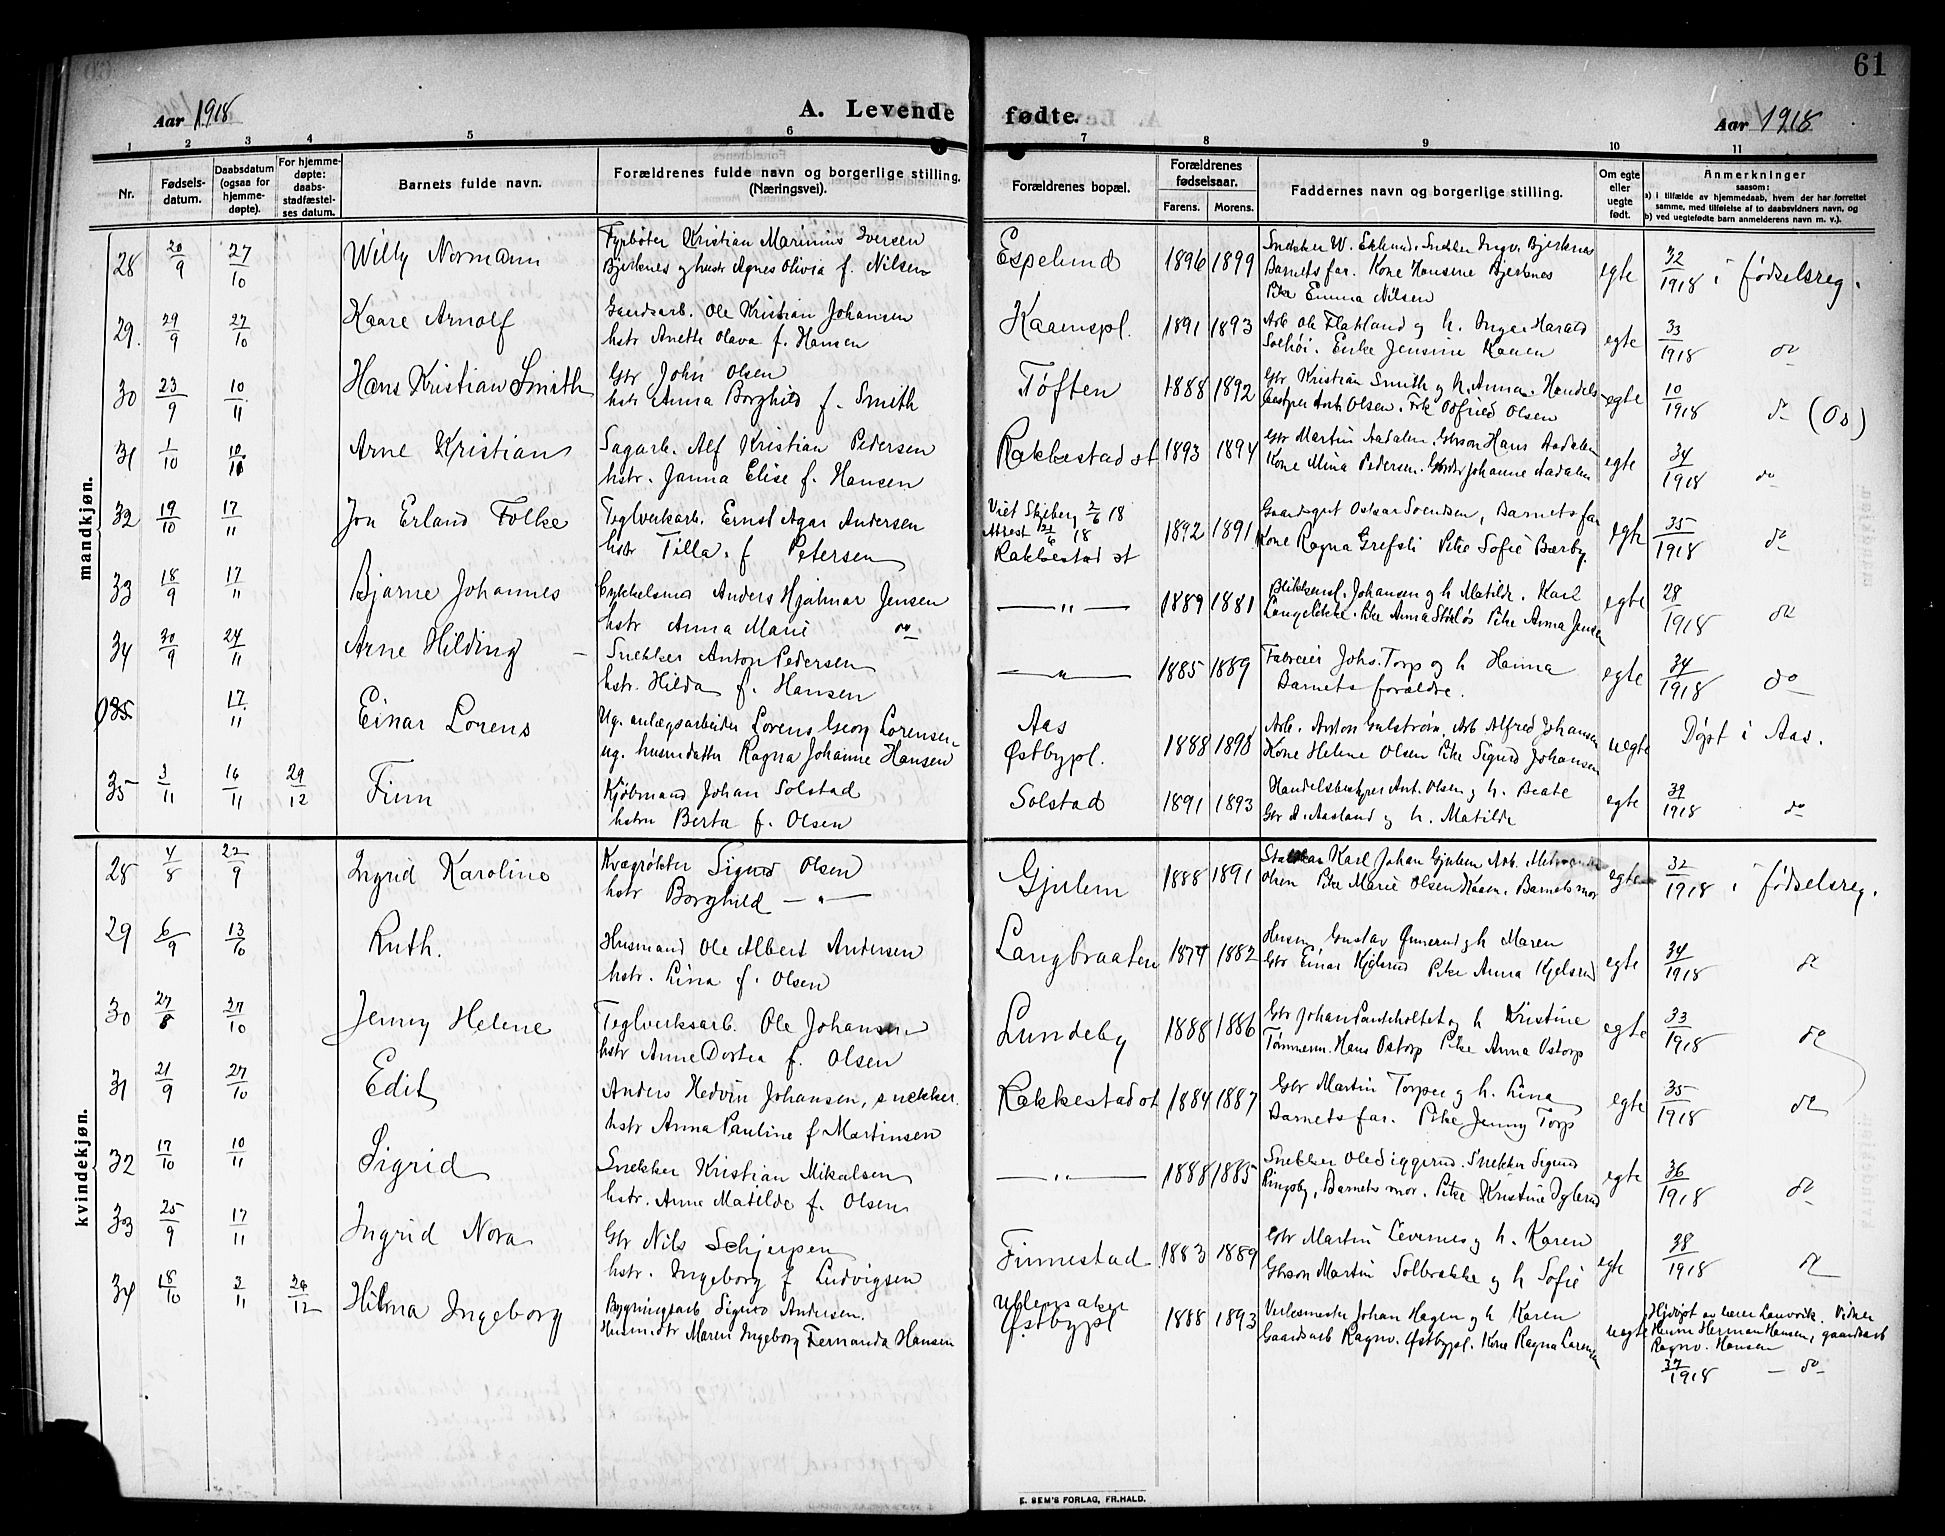 61
Aar 1918
A. Levende fødte.
Aar 1918
1 2 3 4 5 6 7 8 9 10 11
Nr.
Fødsels-
datum.
Daabsdatum
(ogsaa for
hjemme-
døpte).
For hjemme-
døpte:
daabs-
stadfæstel-
ses datum.
Barnets fulde navn.
Forældrenes fulde navn og borgerlige stilling.
(Næringsvei).
Forældrenes bopæl.
Forældrenes
fødselsaar.
Farens. Morens.
Faddernes navn og borgerlige stilling.
Om egte
eller
uegte
født.
Anmerkninger
saasom:
a) i tilfælde av hjemmedaab, hvem der har forrettet
samme, med tilføielse af to daabsvidners navn, og
b) ved uegtefødte barn anmelderens navn m. v.).
mandkjøn.
28 20/9 27/10 Willy Normann
Fyrbøter Kristian Marinius Iversen
Bjerknes og hustr Agnes Olivia f. Nilsen
Espelund 1896 1899
Snekker W. Eklund. Snekker Ingv. Bjerknes
Barnets far. Kone Hansine Bjerknes
Pike Emma Nilsen
egte 32/1918 i fødselsreg.
29. 29/9 27/10 Kaare Arnolf
Gaardsarb. Ole Kristian Johansen
hstr Anette Olava f. Hansen
Kaenspl. 1891 1893
Arb Ole Flatland og h. Inga. Harald
Solhøi. Enke Jensine Kaaen
egte 33/1918 do
30 23/9 10/11 Hans Kristian Smith
Gbr John Olsen
hstr Anna Borghild f. Smith
Toften 1888 1892
Gbr Kristian Smith og h. Anna. Handels-
bestyrer Ant. Olsen. Frk Odfried Olsen
egte 10/1918 do (Os)
31 1/10 10/11 Arne Kristian
Sagarb. Alf Kristian Pedersen
hstr. Janna Elise f. Hansen
Rakkestad st 1893 1894
Gbr Martin Aadalen. Gbrson Hans Aadalen
Kone Mina Pedersen. Johanne Aadalen
egte 34/1918 do
32 19/10 17/11 Jon Erland Folke
Teglverksarb. Ernst Agar Andersen
hstr Tilla. f Petersen
Viet Skjeberg 2/6 18
Attest 21/6 18
Rakkestad st 1892 1891
Gaardsgut Oskar Svendsen, Barnets far
Kone Ragna Grefsli Pike Sofie Bærby.
egte 35/1918 do
33 18/9 17/11 Bjarne Johannes
Cykkelsmed Anders Hjalmar Jensen
hstr Anna Marie do
— " — 1889 1881
Blikkensl. Johansen og h Matilde. Karl
Langeløkke. Pike Anna Pike Anna Jensen
egte 28/1918 do
34 30/9 24/11 Arne Hilding
Snekker Anton Pedersen
hstr. Hilda f. Hansen
— " — 1885 1889
Fabreier Johs. Torp og h Hanna
Barnets forældre.
egte 34/1918 do
035 17/11 Einar Lorens
Ug. anlægsarbeider Lorens Georg Lorensen
ug. husmdatter Ragna Johanne Hansen
Aas
Østbypl. 1888 1898
Arb. Anton Gulstrøm, Arb Alfred Johansen
Kone Helene Olsen Pike Sigrid Johansen
uegte Døpt i Aas.
35 3/11 16/11 29/12 Finn
Kjøbmand Johan Solstad
hstru Berta f. Olsen
Solstad 1891 1893
Handelsbestyrer Ant. Olsen og h. Beate
Gbr A. Aasland og h. Matilde
egte 39/1918 do
kvindekjøn.
28 4/8 22/9 Ingrid Karoline
Kvægrøkter Sigurd Olsen
hstr Borghild — " —
Gjulem 1888 1891
Karl Johan Gjulem Arb.
Olsen Pike Marie Olsen Kaaen. Barnets mor
egte 32/1918 i fødselsreg.
29 6/9 13/10 Ruth.
Husmand Ole Albert Andersen
hstr. Lina f. Olsen
Langbraaten 1879 1882
Husm Gustav og h Maren
Gbr Einar Kjølsrud Pike Anna Kjølsrud
egte 34/1918 do
30 27/8 27/10 Jenny Helene
Teglverksarb. Ole Johansen
hstr Anne Dortea f. Olsen
Lundeby 1888 1886
Gbr Johan og h Kristine
Tømmerm. Hans Ostorp Pike Anna Ostorp
egte 33/1918 do
31 21/9 27/10 Edit
Anders Hedvin Johansen, snekker.
hstr Anna Pauline f Martinsen
Rakkestad st 1884 1887
Gbr Martin Torper og h. Lina
Barnets far. Pike Jenny Torp
egte 35/1918 do
32 17/10 10/11 Sigrid
Snekker Kristian Mikalsen
hstr. Anne Matilde f. Olsen
— " — 1888 1885
Snekker Ole Siggerud. Snekker Sigurd
Ringsby, Barnets mor. Pike Kristine
egte 36/1918 do
33 25/9 17/11 Ingrid Nora
Gbr Nils Schjerpen
hstr. Ingeborg f Ludvigsen
Finnestad 1883 1889
Gbr Martin Levernes og h. Karen
Gbrson Martin Solbrække og h Sofie
egte 38/1918 do
34 18/10 3/11 26/12 Hilma Ingeborg
Bygningsarb Sigurd Andersen.
Husmdtr Maren Ingeborg Fernanda Hansen
Ullensaker
Østbypl 1888 1893
Verksmester Johan Hagen og h Karen
Gaardsarb Ragnv. Østbypl. Kone Ragna Lorensen
uegte Hjdøpt av lærer Vidner
Herman Hansen, gaardsarb
Ragnv. Hansen
37/1918 — do
E. SEM'S FORLAG, FR.HALD.